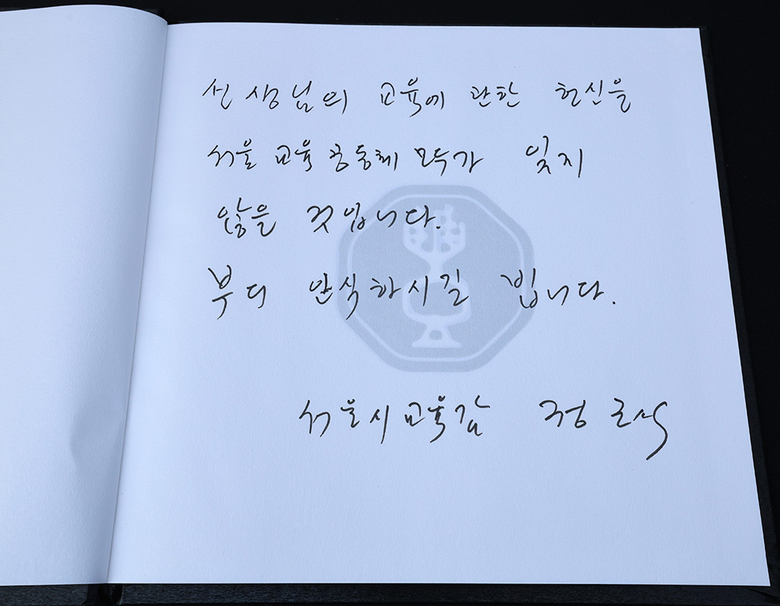 선생님의 교육에 관한 헌신을
서울 교육 공동체 모두가 잊지
않을 것입니다.
부디 안식하시길 빕니다.
서울시교육감 정근식